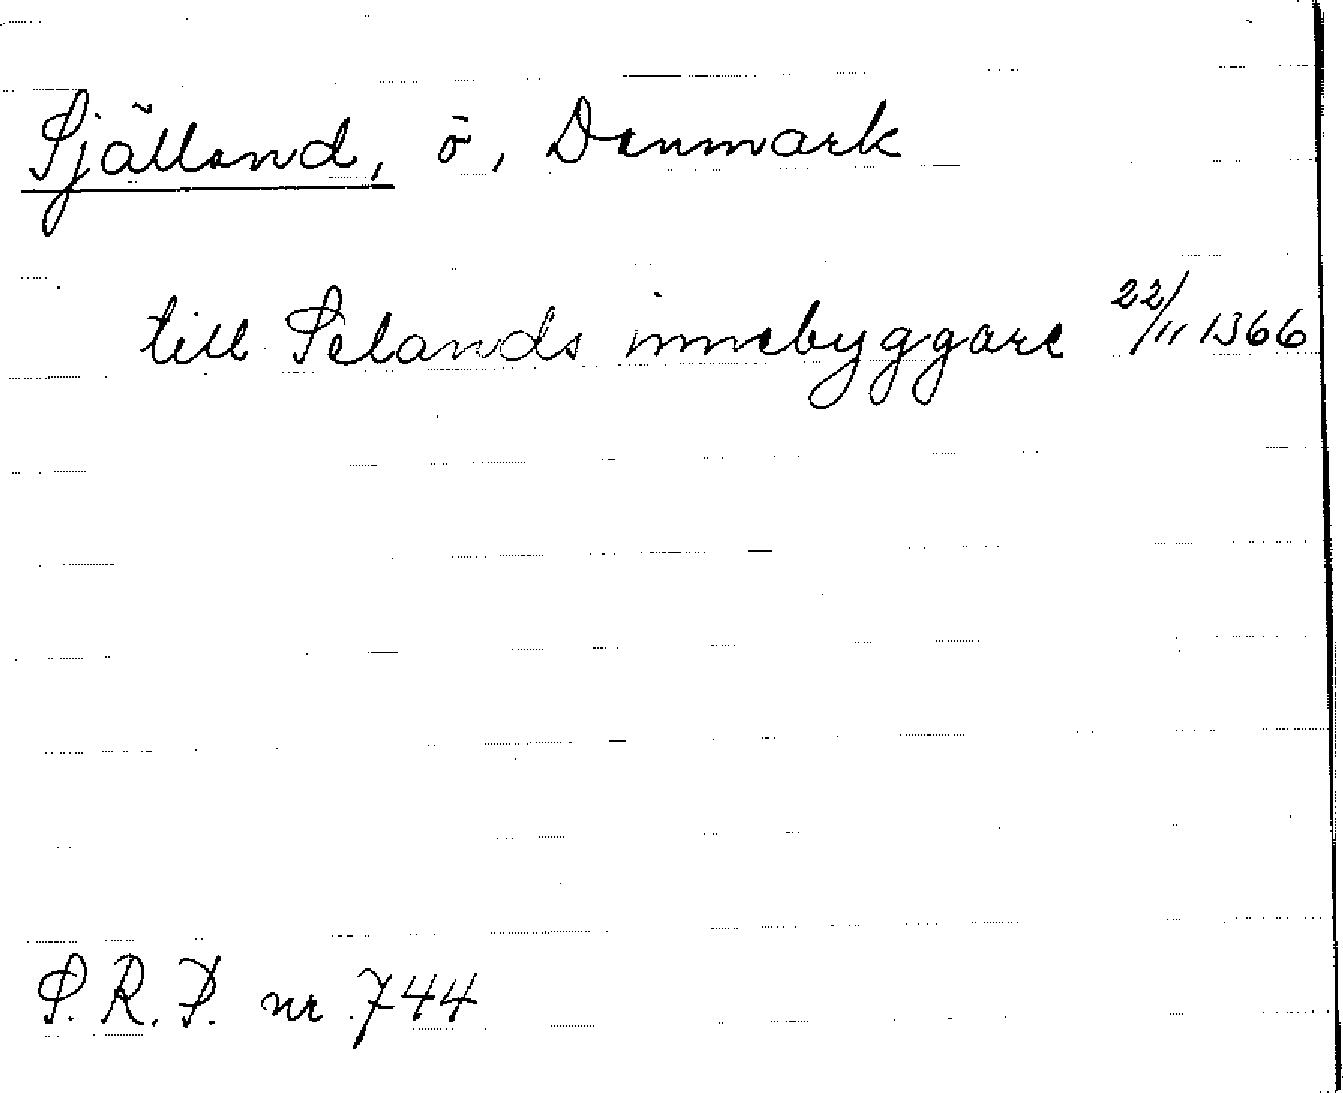 Själland, ö, Danmark
till Selands innebyggare 22/11 1366
S. R. P. nr 744